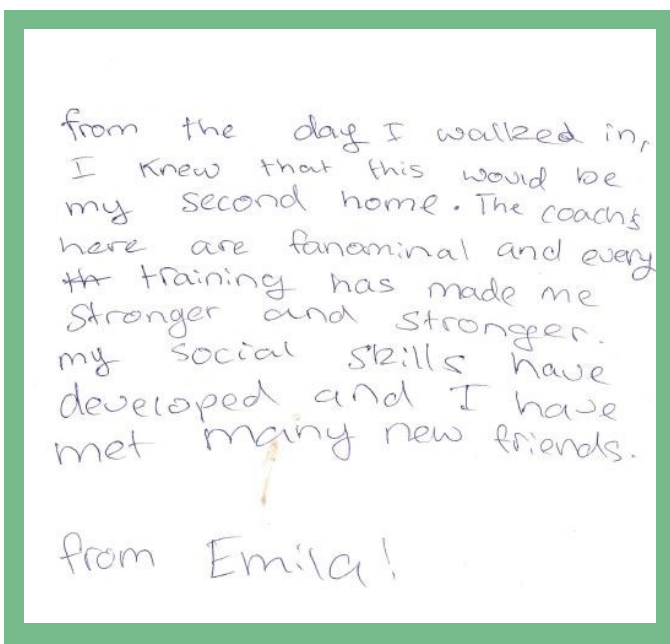 from the day I walked in,
I knew that this would be
my second home. The coachs
here are fanominal and every
th training has made me
stronger and stronger.
my social skills have
developed and I have
met many new friends.
from Emila!